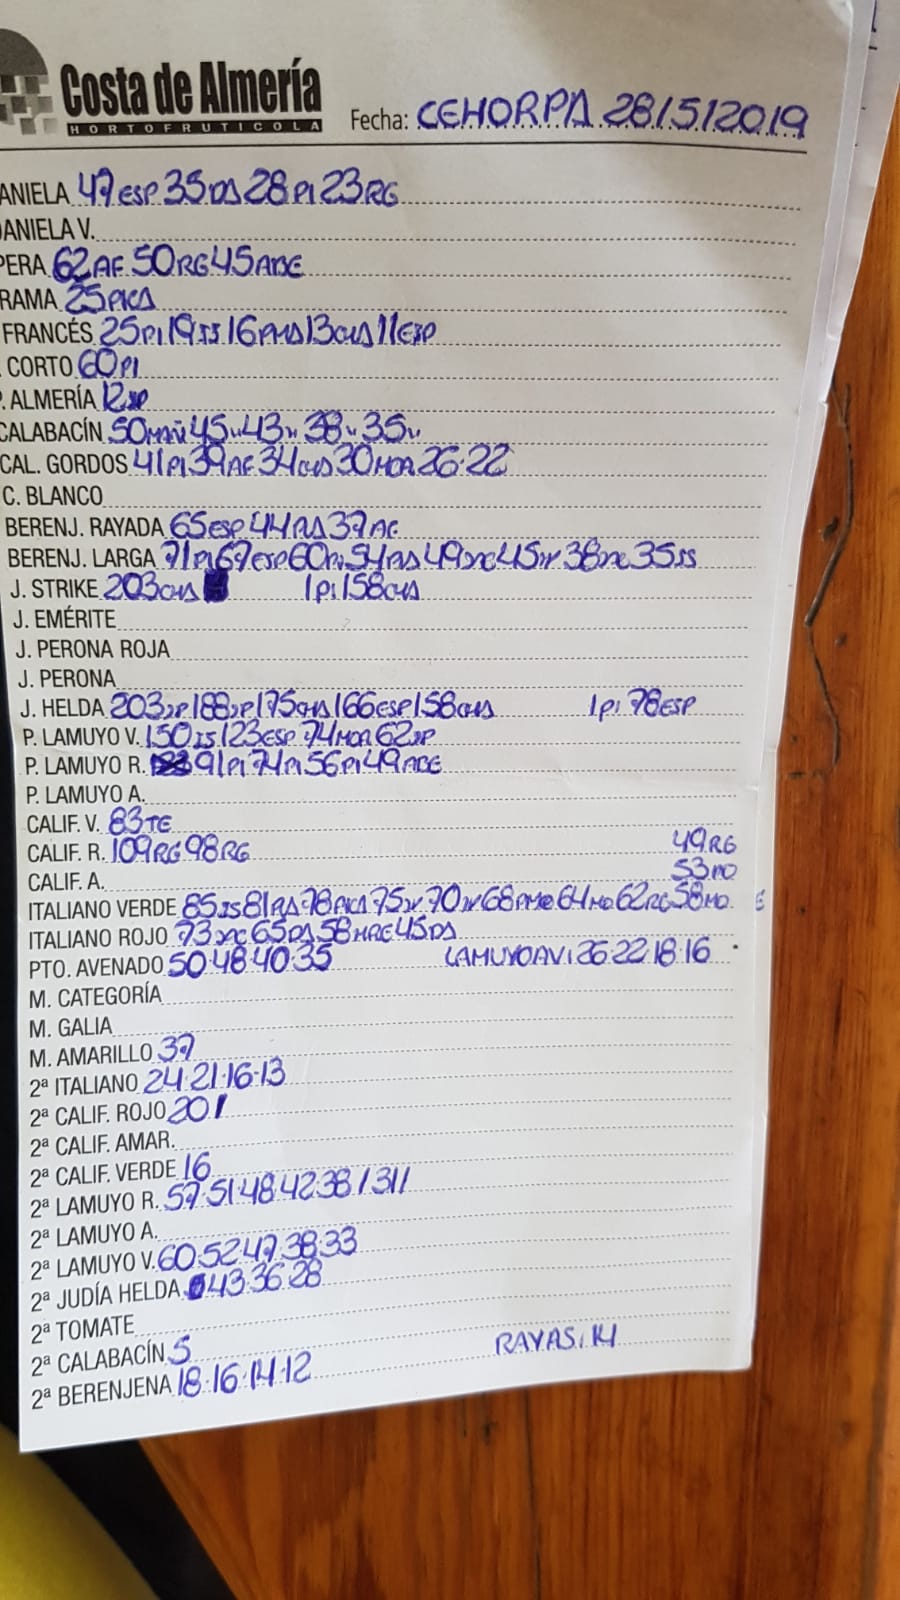 Costa de Almería
HORTOFRUTICOLA
Fecha: CEHORPA 28/5/2019
ANIELA 47ESP 35DS 28PI 23RG
DANIELA V.
PERA 62AF 50RG 45ADE
RAMA 25PICA
FRANCÉS 25PI 19JS 16 13 11ESP
CORTO 60PI
P. ALMERÍA 12
CALABACÍN 50MAÑ 45 43 38 35
CAL. GORDOS 41PI 39AF 34CHS 30MOR 26·22
C. BLANCO
BERENJ. RAYADA 65ESP 44 37AG
BERENJ. LARGA 71PI 67ESP 60PI 54 49 45 38 35JS
J. STRIKE 203CHS 1PI 158CHS
J. EMÉRITE
J. PERONA ROJA
J. PERONA
J. HELDA 203 188 175CHS 166ESP 158CHS 1PI 78ESP
P. LAMUYO V. 150JS 123ESP 74MOR 62
P. LAMUYO R. 91PI 74PI 56PI 49ADE
P. LAMUYO A.
CALIF. V. 83TE
CALIF. R. 109RG 98RG 49RG
CALIF. A. 53MO
ITALIANO VERDE 85JS 81 78PICA 75 70 68 64MO 62RG 58MO
ITALIANO ROJO 73 65DS 58 45DS
PTO. AVENADO 50·48·40·35 LAMUYO AVI 26·22·18·16
M. CATEGORÍA
M. GALIA
M. AMARILLO 37
2ª ITALIANO 24·21·16·13
2ª CALIF. ROJO 20
2ª CALIF. AMAR.
2ª CALIF. VERDE 16
2ª LAMUYO R. 57·51·48·42·38/31/
2ª LAMUYO A.
2ª LAMUYO V. 60·52·47·38·33
2ª JUDÍA HELDA 43·36·28
2ª TOMATE
2ª CALABACÍN 5 RAYAS: 14
2ª BERENJENA 18·16·14·12